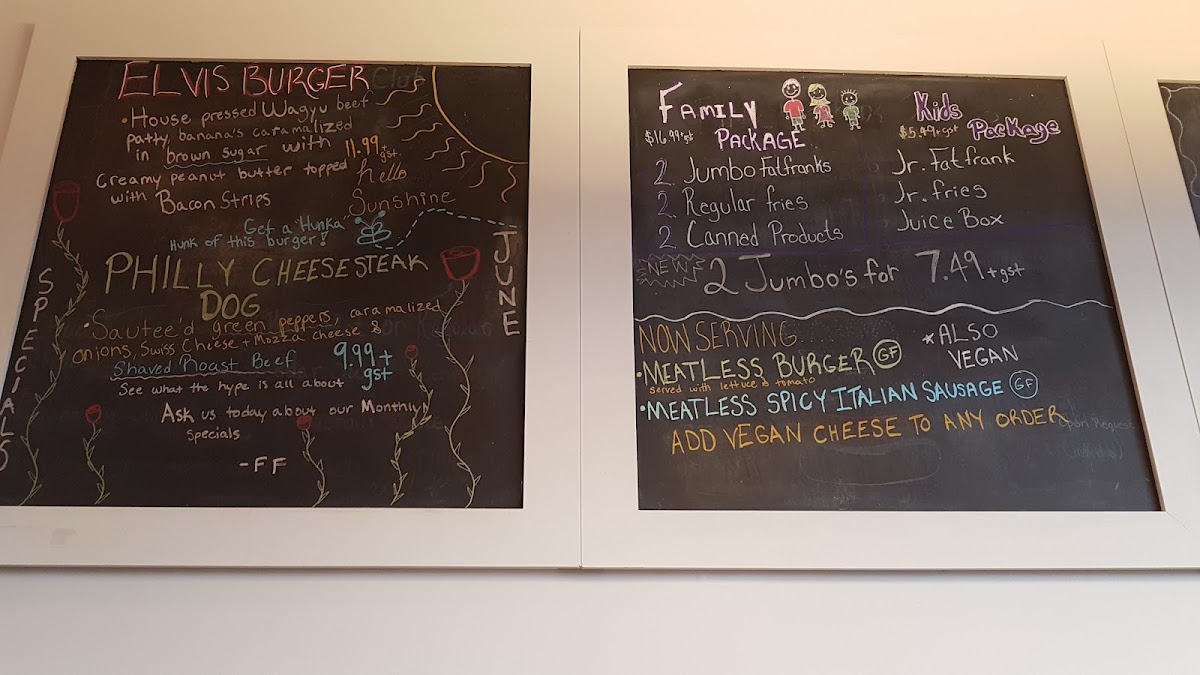 ELVIS BURGER Club
• House pressed Wagyu beef
patty, banana's caramalized
in brown sugar with 11.99 + gst.
Creamy peanut butter topped
with Bacon Strips
hello
Sunshine
Get a "Hunka
Hunk of this burger!
PHILLY CHEESESTEAK
DOG
• Sautee'd green peppers, caramalized
onions, Swiss Cheese + Mozza cheese &
Shaved Roast Beef 9.99 + gst
See what the hype is all about
Ask us today about our Monthly
specials
- FF
SPECIALS
JUNE
FAMILY
$16.99 + gst PACKAGE
2 Jumbo Fatfranks
2 Regular fries
2 Canned Products
Kids
$5.49 + gst Package
Jr. Fatfrank
Jr. fries
Juice Box
NEW 2 Jumbo's for 7.49 + gst
NOW SERVING
• MEATLESS BURGER GF
served with lettuce & tomato
* ALSO
VEGAN
• MEATLESS SPICY ITALIAN SAUSAGE GF
ADD VEGAN CHEESE TO ANY ORDER